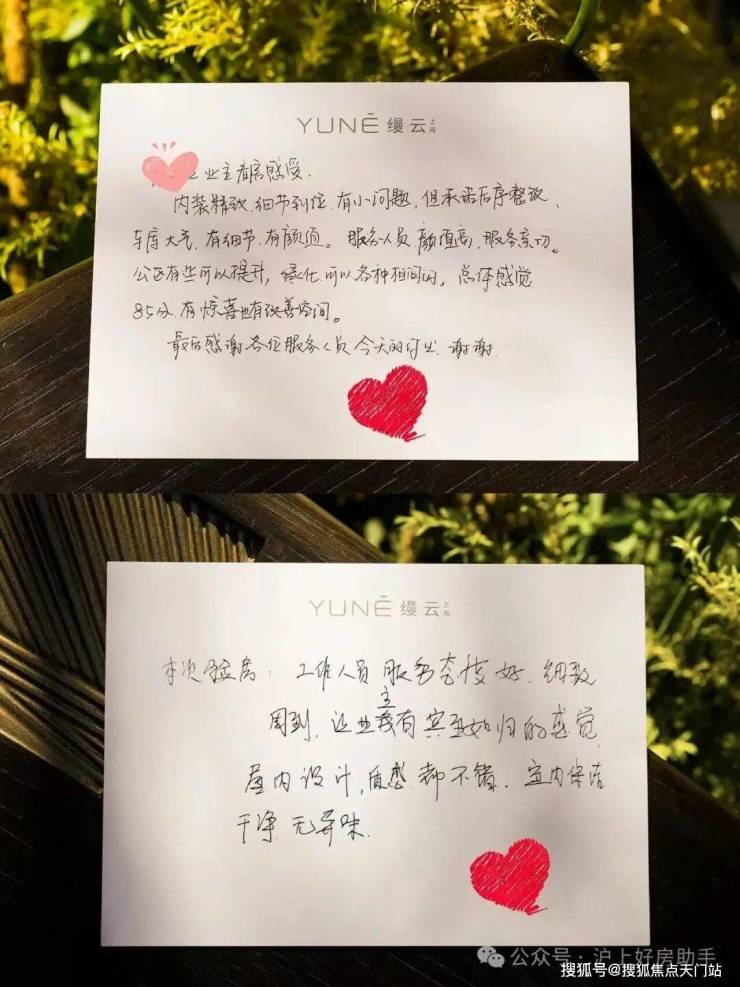 YUNĒ 缦云 上海
业主看房感受.
内装精致.细节到位.有小问题,但承诺后序整改、
车库大气,有细节.有颜值。服务人员颜值高,服务亲切。
公区有些可以提升,绿化可以各种相间的。总体感觉
85分.有惊喜也有改善空间。
最后感谢各位服务人员今天的付出.谢谢.
YUNĒ 缦云 上海
本次验房:工作人员服务态度好.细致
周到.让业主有宾至如归的感觉
屋内设计,质感都不错.室内保洁
干净无异味.
公众号·沪上好房助手
搜狐号@搜狐焦点天门站